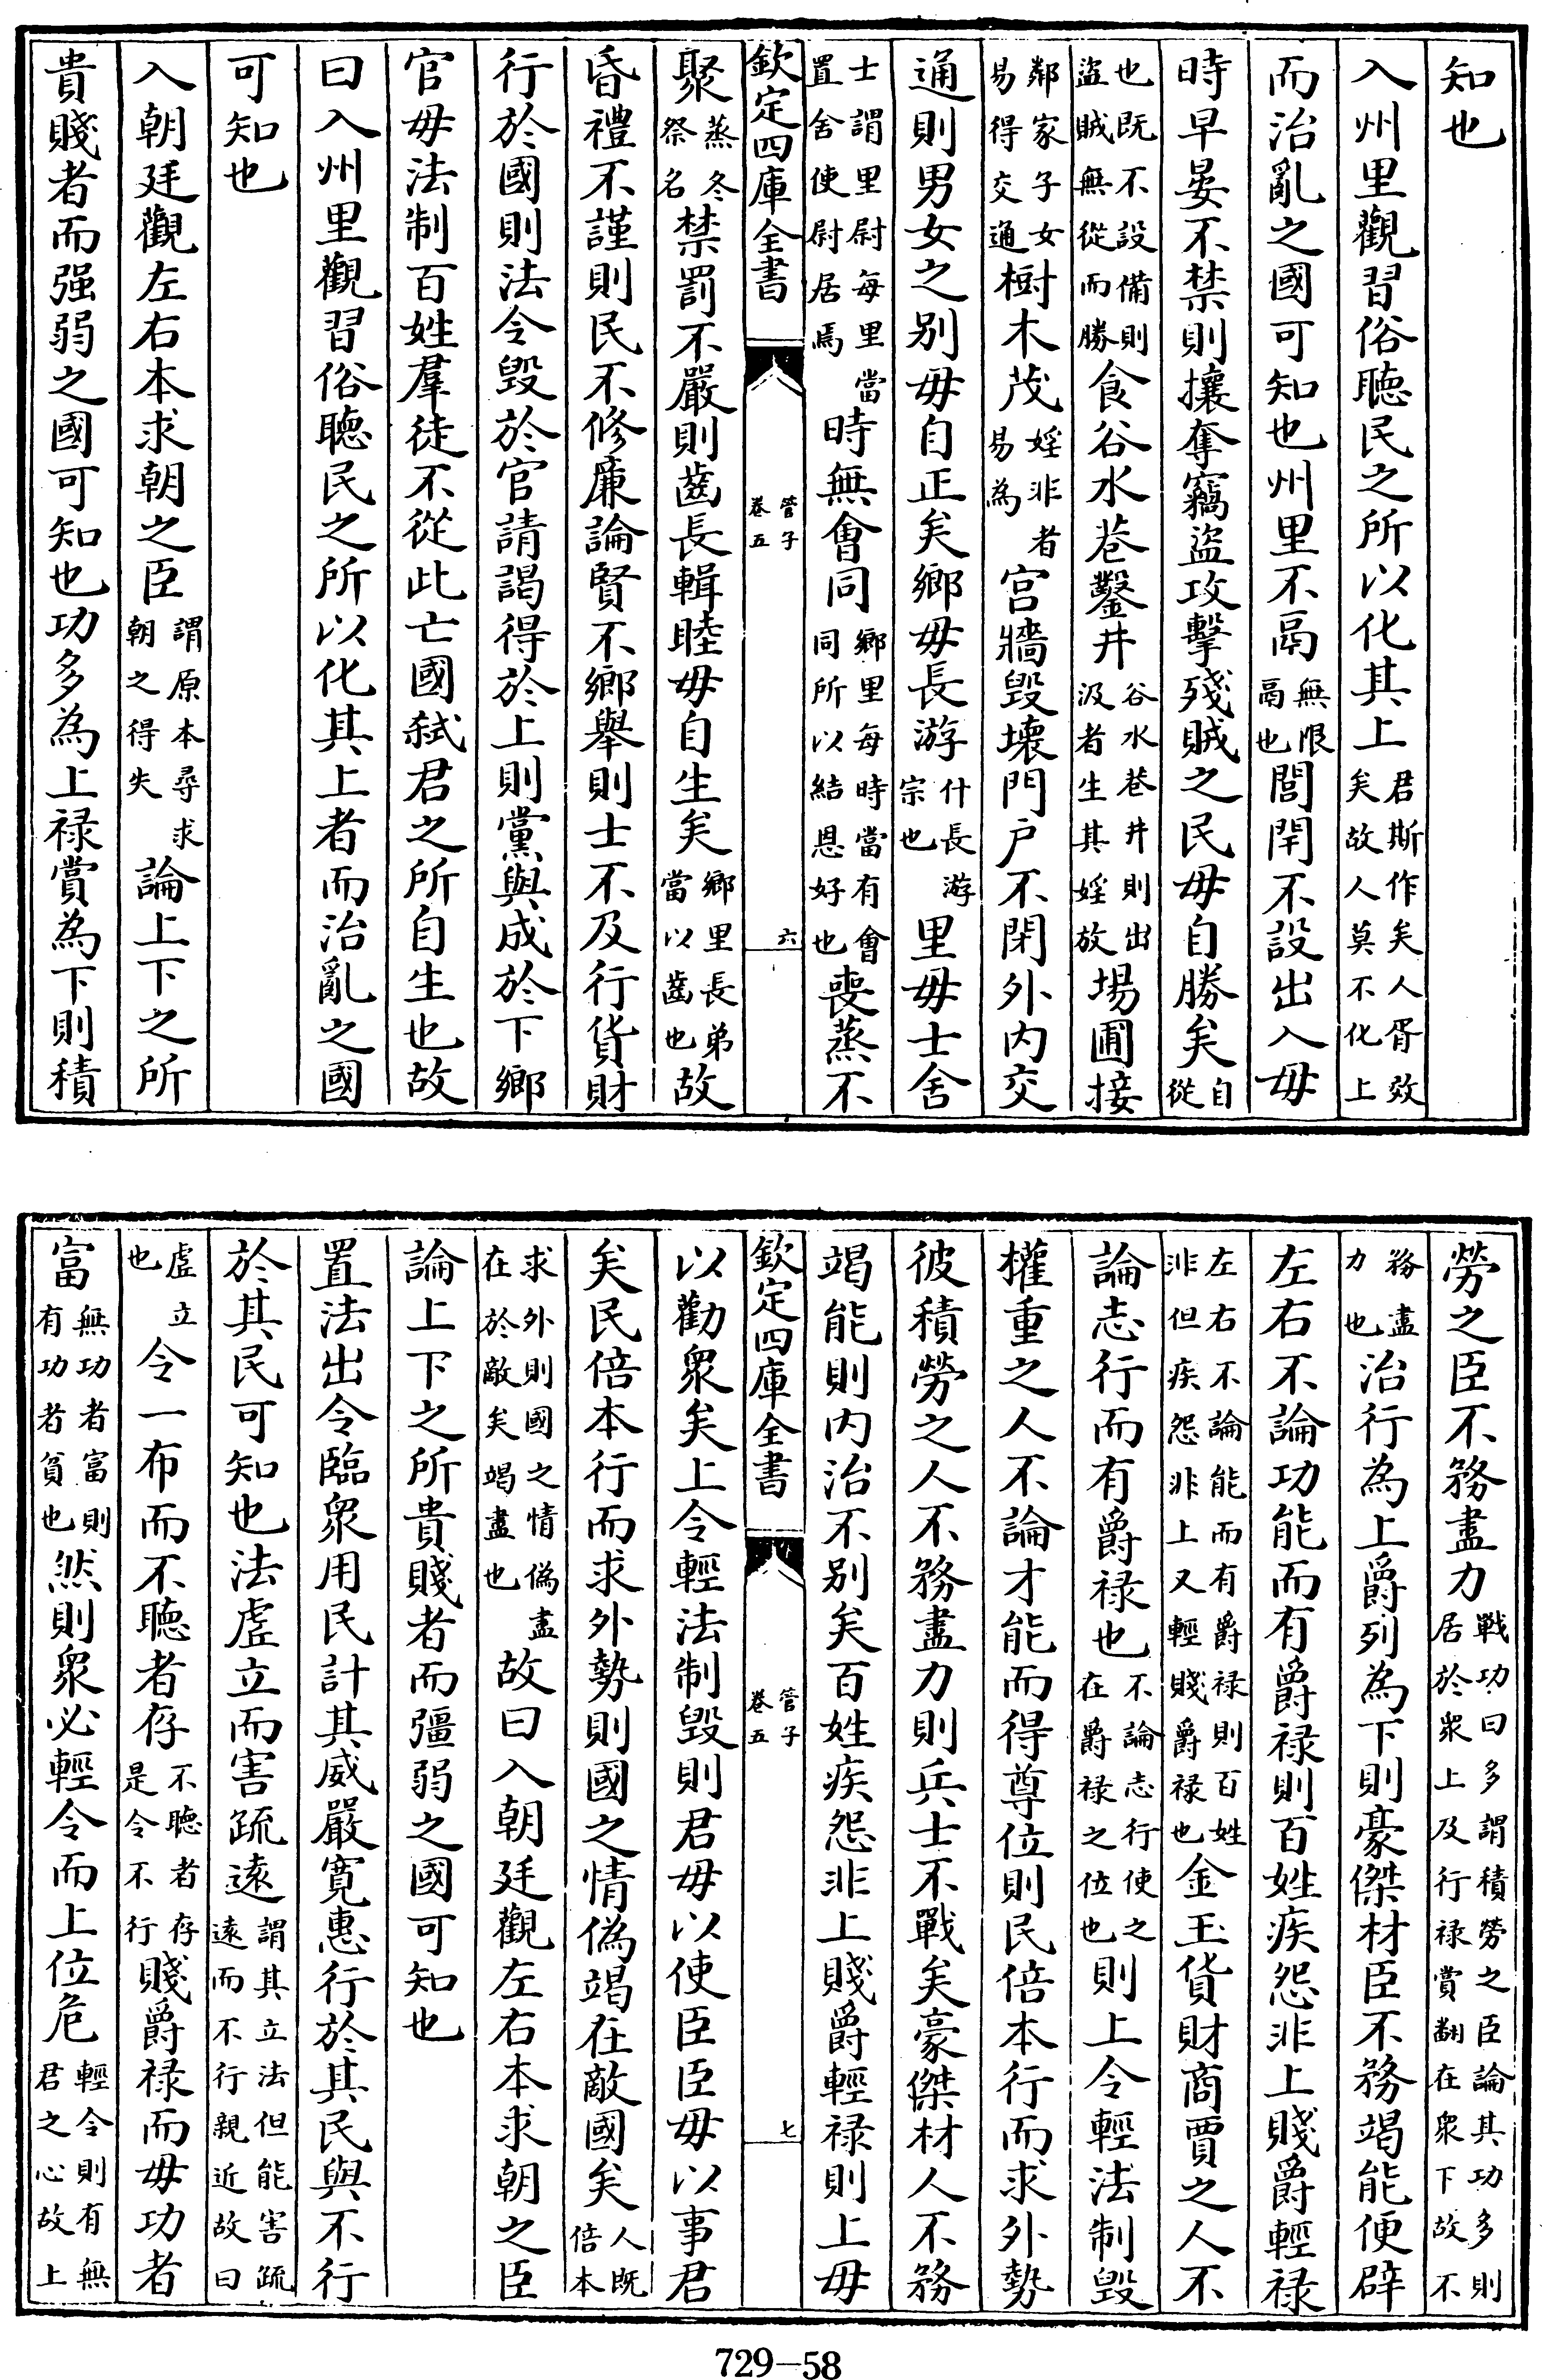 知也
入州里觀習俗聽民之所以化其上君斯作矣人胥效矣故人莫不化上
而治亂之國可知也州里不鬲無限鬲也閭閈不設出入毋
時早晏不禁則攘奪竊盜攻擊殘賊之民毋自勝矣自從
也既不設備則盜賊無從而勝食谷水巷鑿井谷水巷井則出汲者生其婬放場圃接
鄰家子女易得交通樹木茂婬非者易為宫牆毀壞門户不閉外内交
通則男女之别毋自正矣鄉毋長游什長游宗也里毋士舍
士謂里尉每里當置舍使尉居焉時無會同鄉里每時當有會同所以結恩好也喪蒸不
欽定四庫全書 管子卷五 六
聚蒸冬祭名禁罰不嚴則齒長輯睦毋自生矣鄉里長弟當以齒也故
昏禮不謹則民不修廉論賢不鄉舉則士不及行貨財
行於國則法令毁於官請謁得於上則黨與成於下鄉
官毋法制百姓羣徒不從此亡國弑君之所自生也故
曰入州里觀習俗聽民之所以化其上者而治亂之國
可知也
入朝廷觀左右本求朝之臣謂原本尋求朝之得失論上下之所
貴賤者而强弱之國可知也功多為上禄賞為下則積
勞之臣不務盡力戰功曰多謂積勞之臣論其功多則居於衆上及行禄賞翻在衆下故不
務盡力也治行為上爵列為下則豪傑材臣不務竭能便辟
左右不論功能而有爵禄則百姓疾怨非上賤爵輕禄
左右不論能而有爵禄則百姓非但疾怨非上又輕賤爵禄也金玉貨財商賈之人不
論志行而有爵禄也不論志行使之在爵禄之位也則上令輕法制毁
權重之人不論才能而得尊位則民倍本行而求外勢
彼積勞之人不務盡力則兵士不戰矣豪傑材人不務
竭能則内治不别矣百姓疾怨非上賤爵輕禄則上毋
欽定四庫全書 管子卷五 七
以勸衆矣上令輕法制毁則君毋以使臣臣毋以事君
矣民倍本行而求外勢則國之情偽竭在敵國矣人既倍本
求外則國之情偽盡在於敵矣竭盡也故曰入朝廷觀左右本求朝之臣
論上下之所貴賤者而彊弱之國可知也
置法出令臨衆用民計其威嚴寛惠行於其民與不行
於其民可知也法虚立而害疏遠謂其立法但能害疏遠而不行親近故曰
虚立也令一布而不聽者存不聽者存是令不行賤爵禄而毋功者
富無功者富則有功者貧也然則衆必輕令而上位危輕令則有無君之心故上
729-58